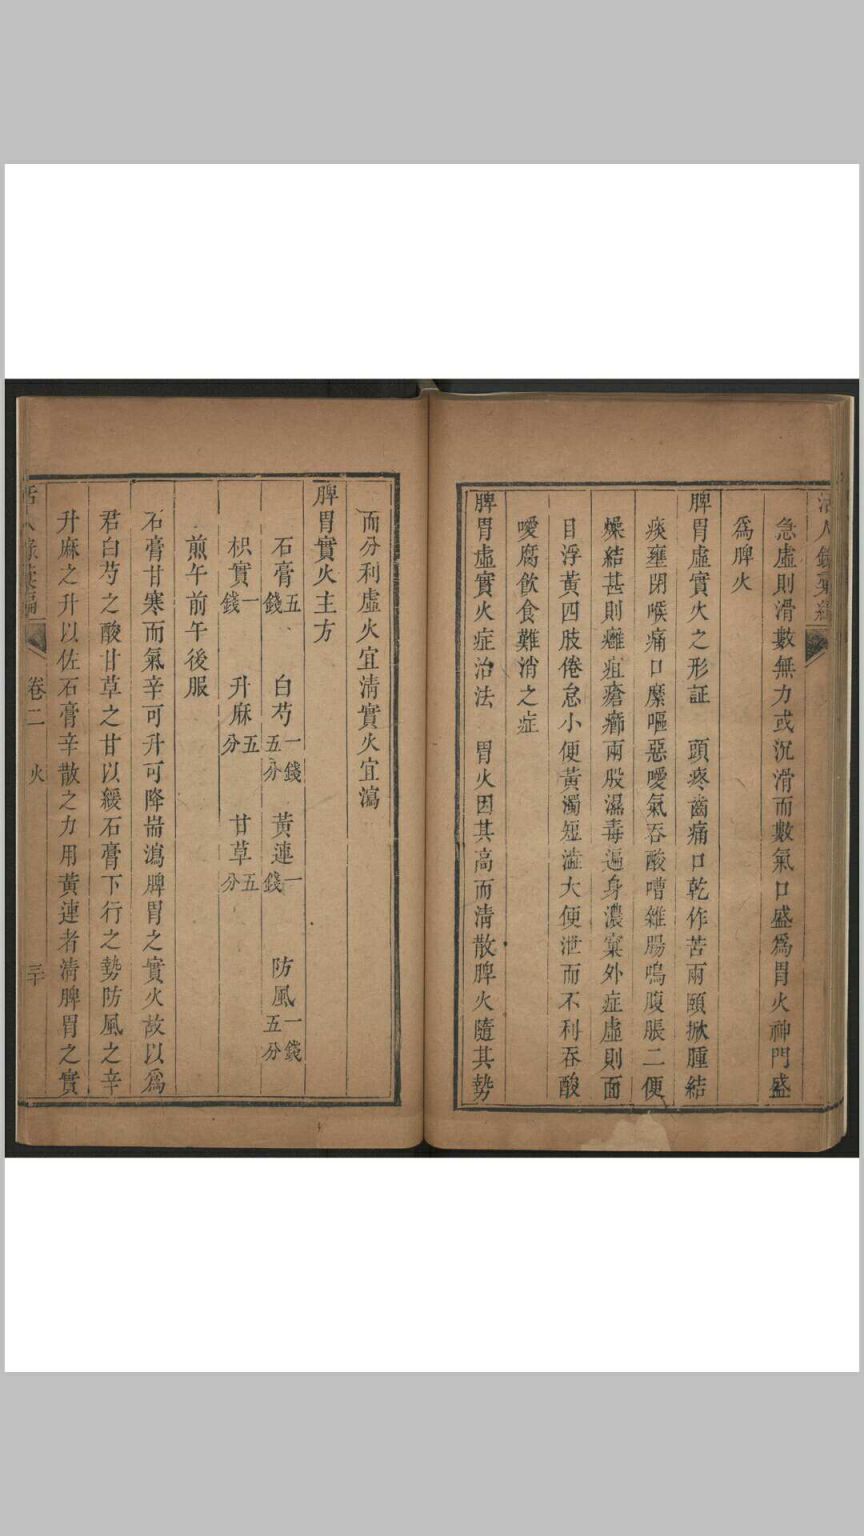 活人錄彙編
急虛則滑數無力或沉滑而數氣口盛爲胃火神門盛
爲脾火
脾胃虛實火之形証　頭疼齒痛口乾作苦兩頤掀腫結
痰壅閉喉痛口糜嘔惡噯氣吞酸嘈雜腸鳴腹脹二便
燥結甚則癰疽瘡癤兩股濕毒遍身濃窠外症虛則面
目浮黃四肢倦怠小便黃濁短澁大便泄而不利吞酸
噯腐飲食難消之症
脾胃虛實火症治法　胃火因其高而清散脾火隨其勢
而分利虛火宜清實火宜瀉
脾胃實火主方
石膏五錢　白芍一錢五分　黃連一錢　防風一錢五分
枳實一錢　升麻五分　甘草五分
煎午前午後服
石膏甘寒而氣辛可升可降耑瀉脾胃之實火故以爲
君白芍之酸甘草之甘以緩石膏下行之勢防風之辛
升麻之升以佐石膏辛散之力用黃連者清脾胃之實
活人錄彙編　卷二　火　三十